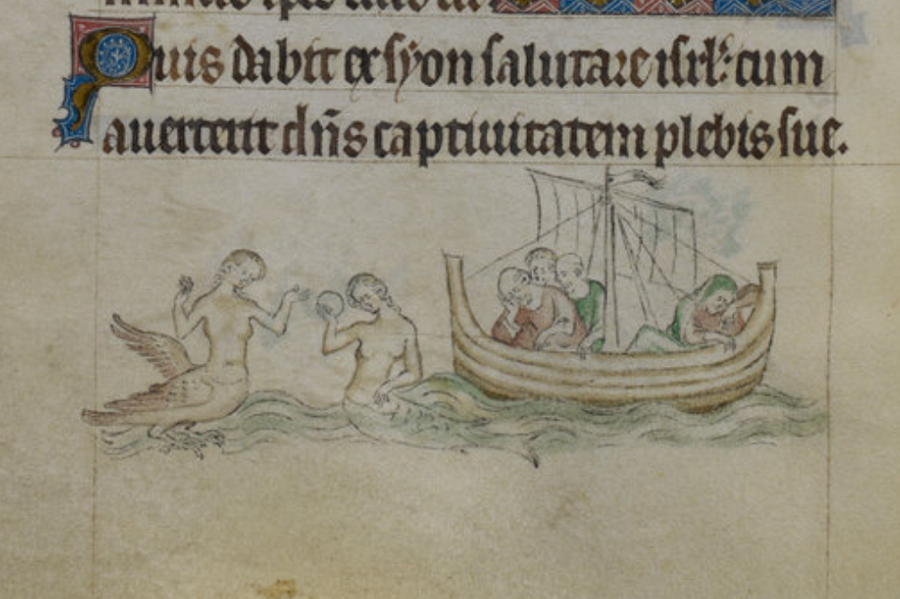 Quis dabit ex syon salutare isrl: cum
auerterit dñs captiuitatem plebis sue.